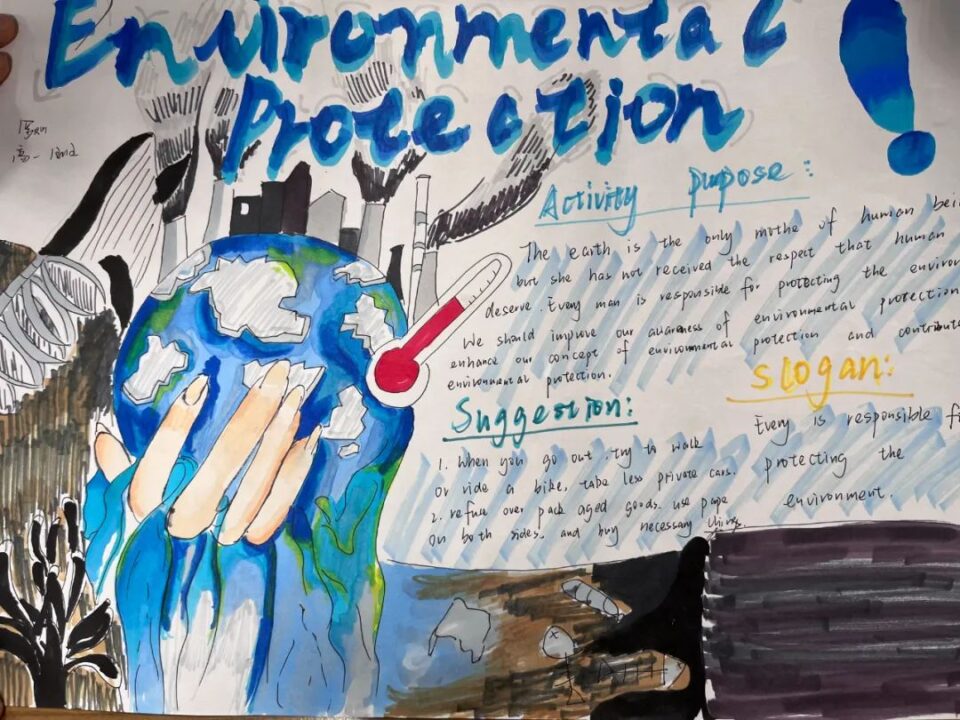 Environmental
Protection !
Activity pupose :
The earth is the only mothe of human bei
but she has not received the respect that human
deserve. Every man is responsible for protecting the environ
We should improve our awareness of environmental protection
enhance our concept of environmental protection and contribute
environmental protection.
Suggestion:
1. When you go out, try to walk
or ride a bike, take less private cars.
2. refuse over pack aged goods. use pape
on both sides. and buy necessary things.
slogan:
Every is responsible f
protecting the
environment.